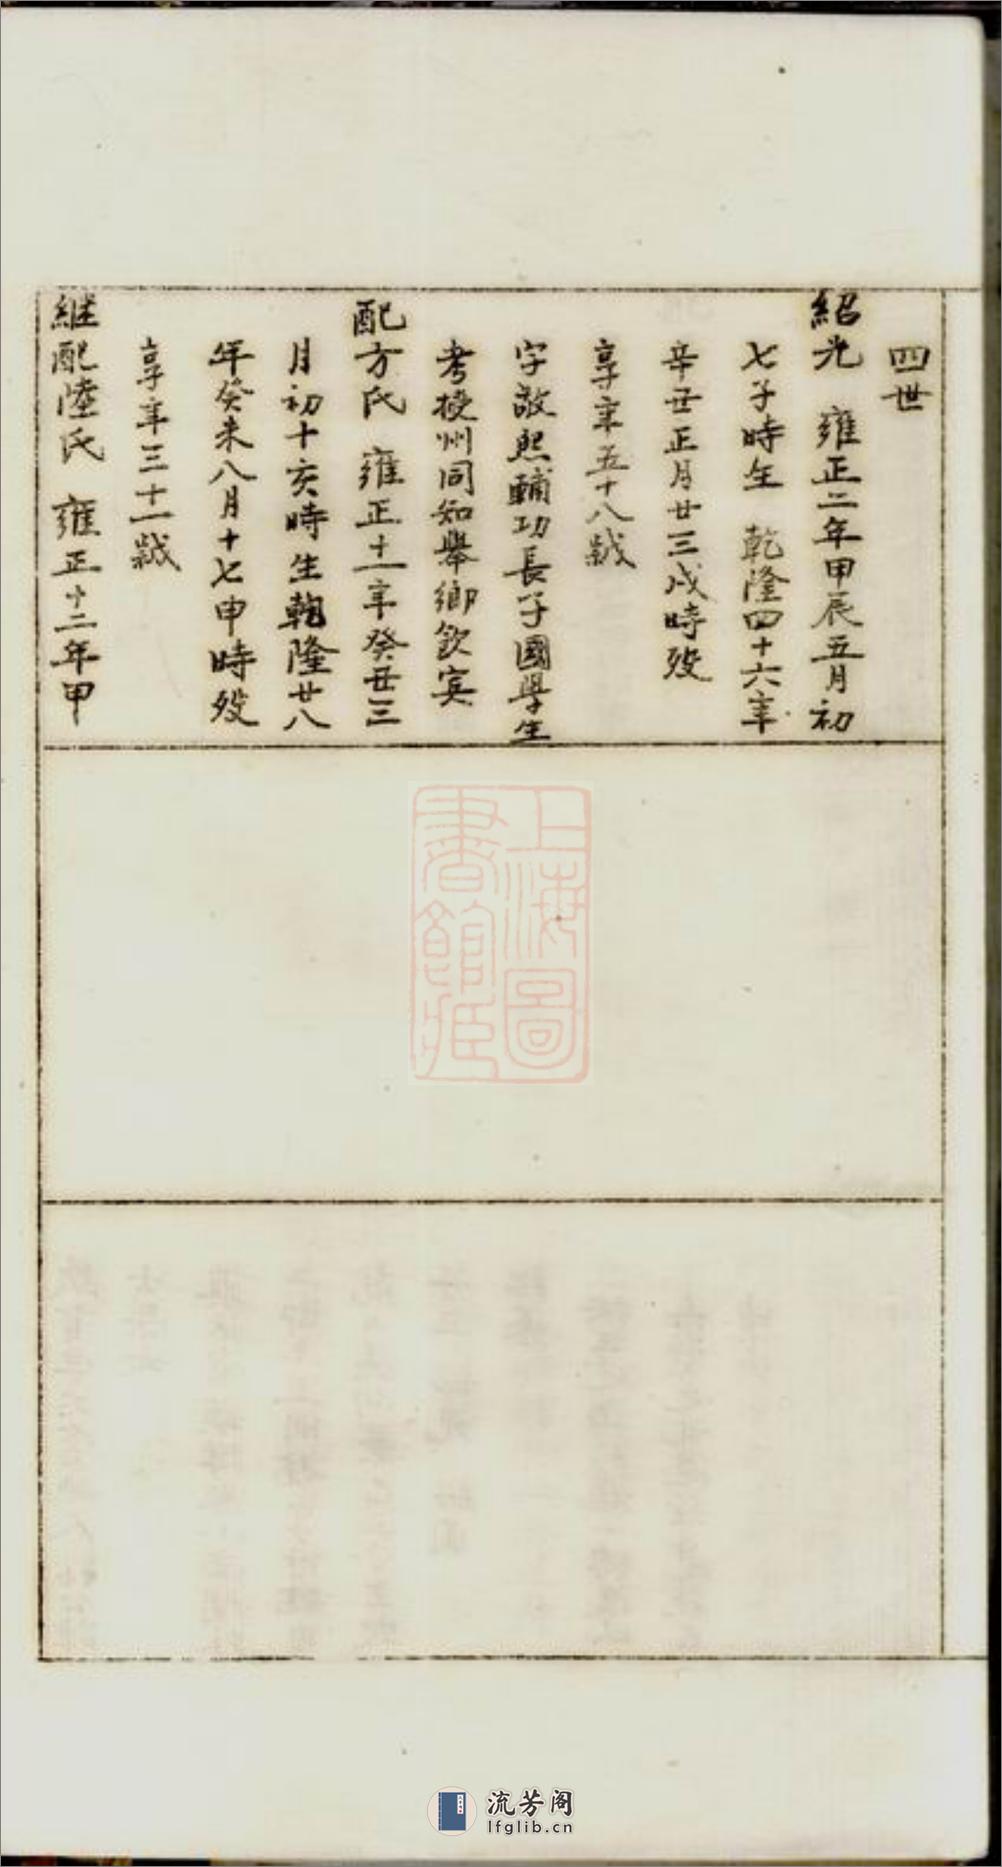 四世
紹光　雍正二年甲辰五月初
七子時生　乾隆四十六年
辛丑正月廿三戌時歿
享年五十八歲
字敬熙輔功長子國學生
考授州同知舉鄉飲賓
配方氏　雍正十一年癸丑三
月初十亥時生乾隆廿八
年癸未八月十七申時歿
享年三十一歲
繼配陸氏　雍正十二年甲
上海圖
書館藏
流芳阁
lfglib.cn